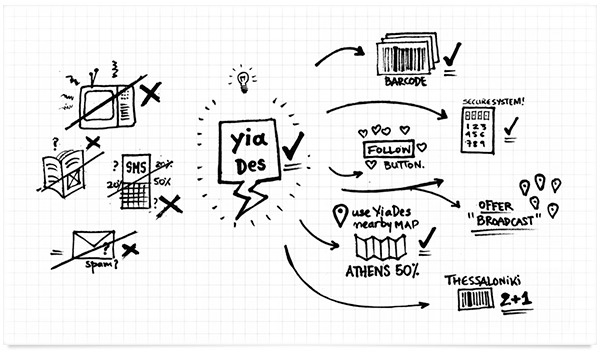 ?
?
SMS
20%
20%
50%
?
?
spam?
yia
Des
BARCODE
SECURE SYSTEM!
1 2 3
4 5 6
7 8 9
FOLLOW
BUTTON.
OFFER
"BROADCAST"
use YiaDes
nearby MAP
ATHENS 50%
THESSALONIKI
2+1